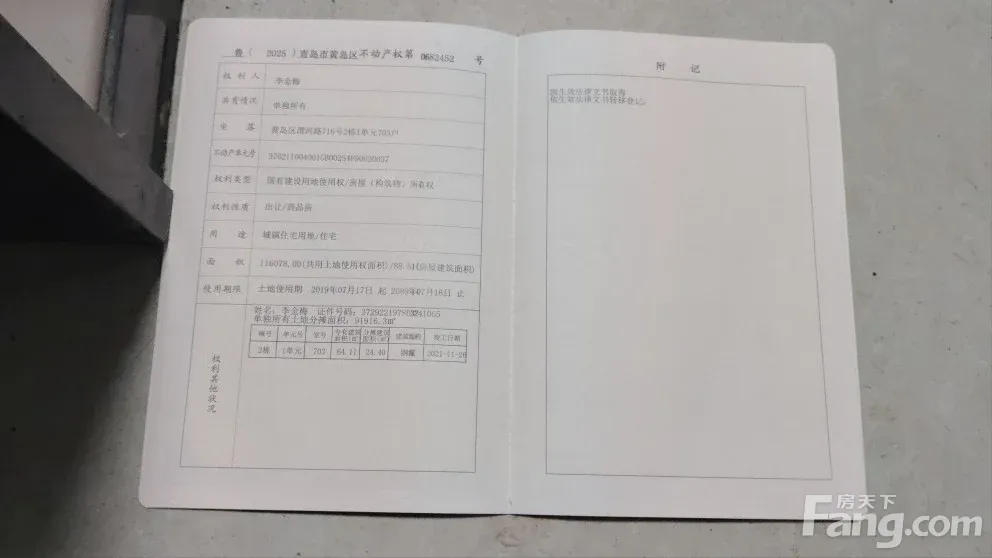 鲁（ 2025 ）青岛市黄岛区不动产权第 0682452 号
权利人 李金梅
共有情况 单独所有
坐落 黄岛区渭河路716号2栋1单元703户
不动产单元号
权利类型 国有建设用地使用权/房屋（构筑物）所有权
权利性质 出让/商品房
用途 城镇住宅用地/住宅
面积 116078.00(共用土地使用权面积)/88.51(房屋建筑面积)
使用期限 土地使用期 2019年07月17日 起 2089年07月16日 止
权利其他状况
姓名：李金梅 证件号码：
单独所有土地分摊面积：91916.3㎡
幢号 单元号 室号 专有建筑面积(㎡) 分摊建筑面积(㎡) 建筑结构 竣工日期
2栋 1单元 703 64.11 24.40 钢混 2021-11-26
附记
依生效法律文书转移登记;
房天下
Fang.com